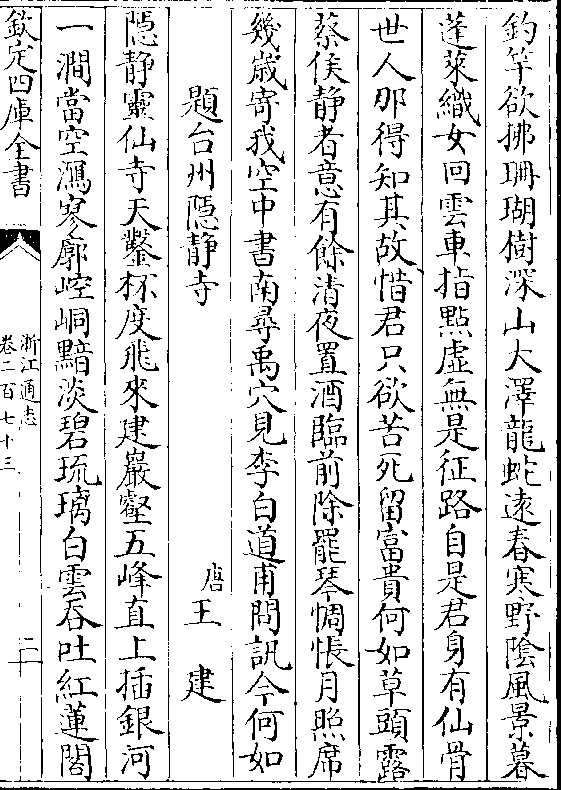 釣竿欲拂珊瑚樹深山大澤龍蛇遠春寒野隂風景暮
蓬萊織女回雲車指點虛無是征路自是君身有仙骨
世人那得知其故惜君只欲苦死留富貴何如草頭露
蔡侯静者意有餘清夜置酒臨前除罷琴惆悵月照席
幾歲寄我空中書南尋禹穴見李白道甫問訊今何如
題台州隠静寺
唐王建
隠静靈仙寺天鑿杯度飛來建巖壑五峰直上插銀河
一澗當空瀉寥廓崆峒黯淡碧琉璃白雲吞吐紅蓮閣
欽定四庫全書
浙江通志
卷二百七十三
二